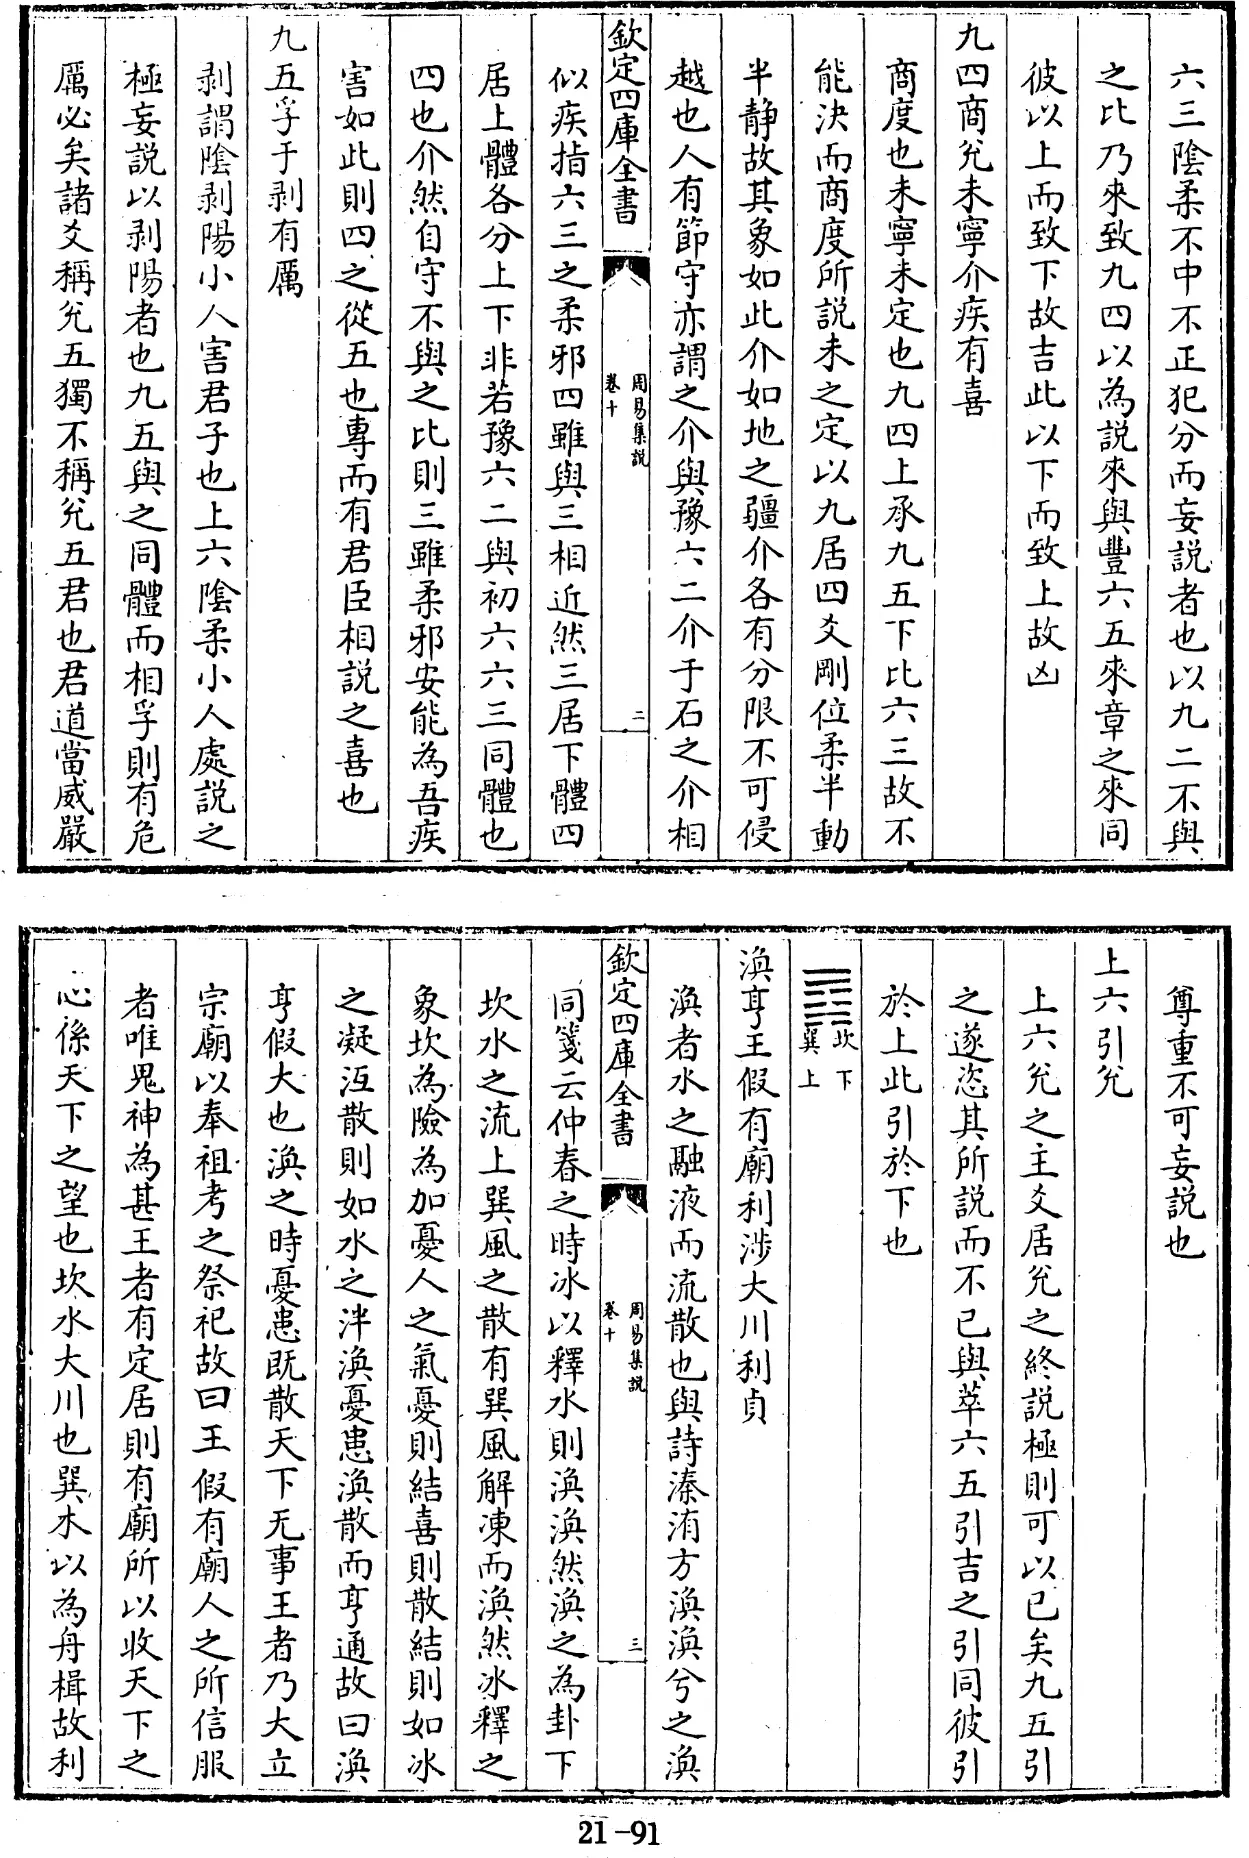 六三陰柔不中不正犯分而妄説者也以九二不與
之比乃來致九四以為説來與豐六五來章之來同
彼以上而致下故吉此以下而致上故凶
九四商兊未寧介疾有喜
商度也未寧未定也九四上承九五下比六三故不
能決而商度所説未之定以九居四爻剛位柔半動
半靜故其象如此介如地之疆介各有分限不可侵
越也人有節守亦謂之介與豫六二介于石之介相
欽定四庫全書
周易集説
卷十
二
似疾指六三之柔邪四雖與三相近然三居下體四
居上體各分上下非若豫六二與初六六三同體也
四也介然自守不與之比則三雖柔邪安能為吾疾
害如此則四之從五也專而有君臣相説之喜也
九五孚于剥有厲
剥謂陰剥陽小人害君子也上六陰柔小人處説之
極妄説以剥陽者也九五與之同體而相孚則有危
厲必矣諸爻稱兊五獨不稱兊五君也君道當威嚴
尊重不可妄説也
上六引兊
上六兊之主爻居兊之終説極則可以已矣九五引
之遂恣其所説而不已與萃六五引吉之引同彼引
於上此引於下也
䷺坎下
巽上
渙亨王假有廟利涉大川利貞
渙者水之融液而流散也與詩溱洧方渙渙兮之渙
欽定四庫全書
周易集説
卷十
三
同箋云仲春之時冰以釋水則渙渙然渙之為卦下
坎水之流上巽風之散有巽風解凍而渙然冰釋之
象坎為險為加憂人之氣憂則結喜則散結則如冰
之凝沍散則如水之泮渙憂患渙散而亨通故曰渙
亨假大也渙之時憂患既散天下无事王者乃大立
宗廟以奉祖考之祭祀故曰王假有廟人之所信服
者唯鬼神為甚王者有定居則有廟所以收天下之
心係天下之望也坎水大川也巽木以為舟楫故利
21-91